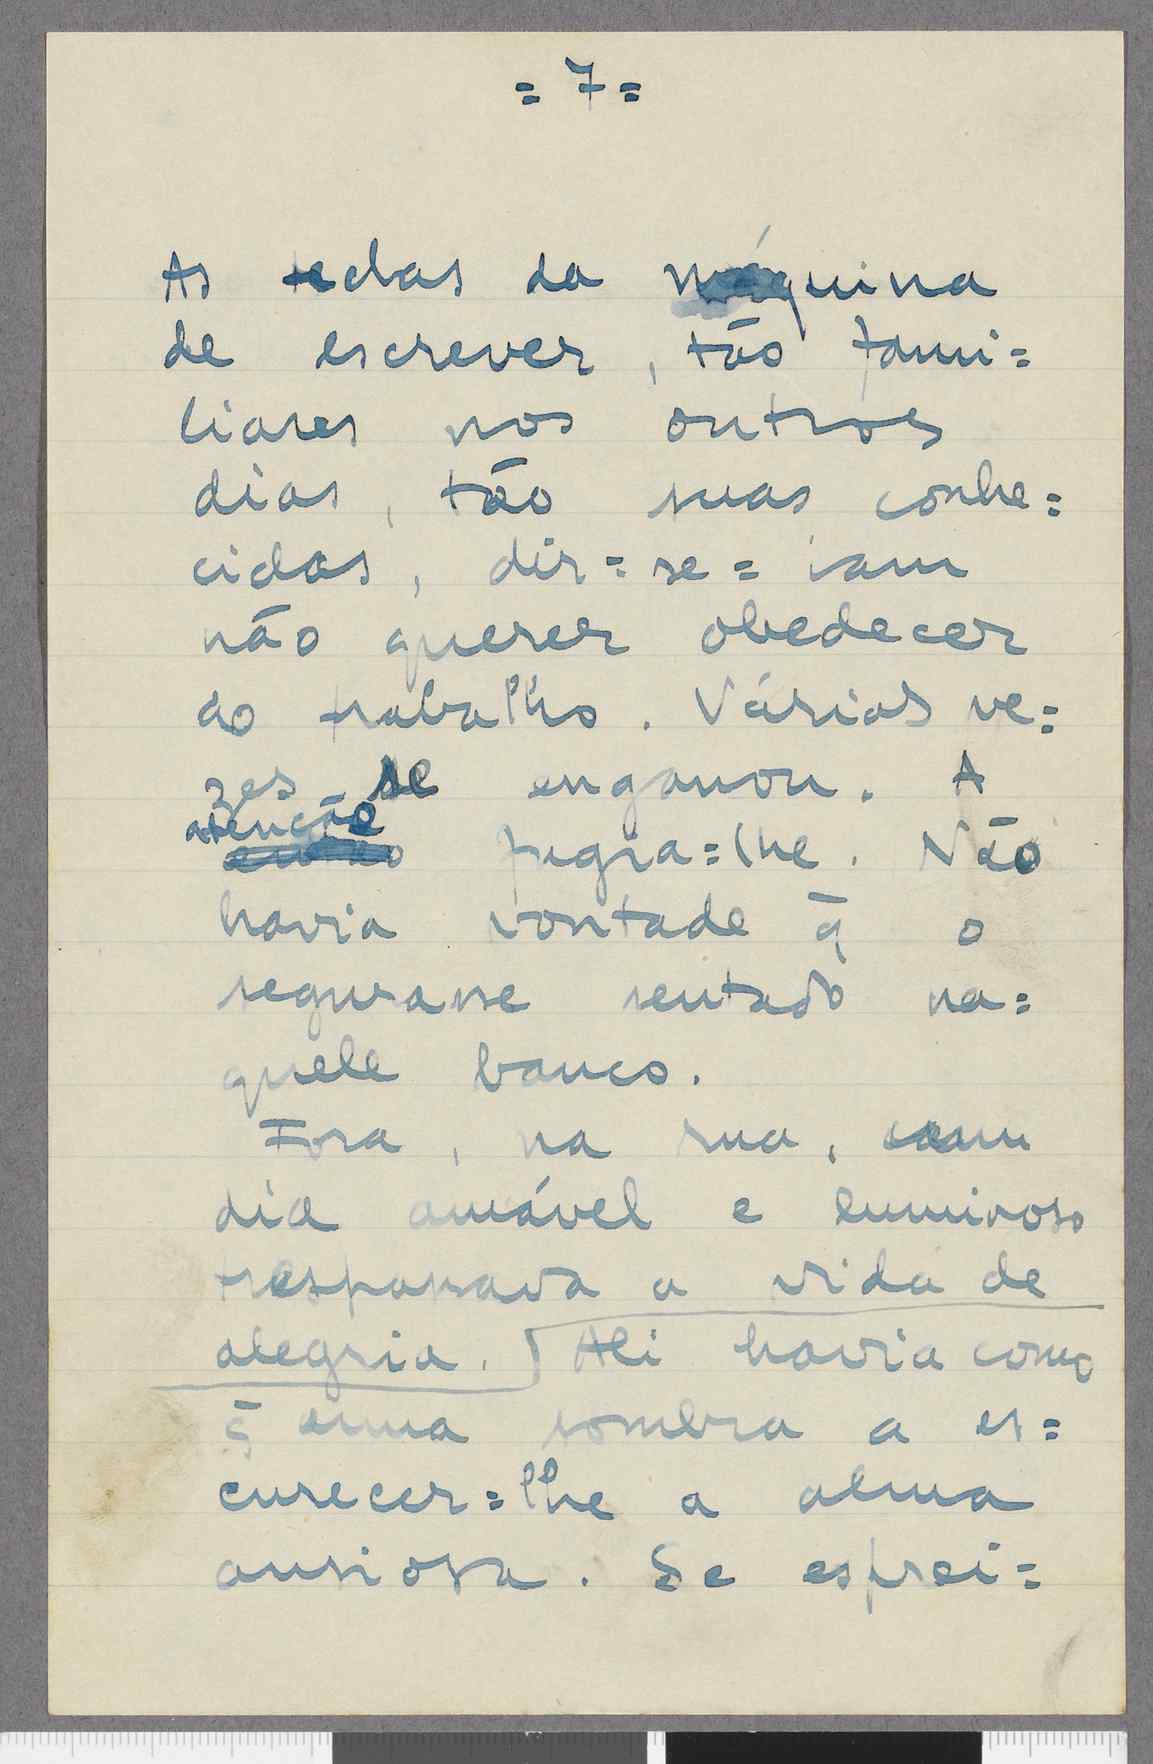 = 7 =
As teclas da máquina
de escrever, tão fami=
liares nos outros
dias, tão suas conhe=
cidas, dir=se=iam
não querer obedecer
ao trabalho. Várias ve=
zes se enganou. A
atenção
fugia=lhe. Não
havia vontade q̄ o
segurasse sentado na=
quele banco.
Fora, na rua, um
dia amável e luminoso
traspassava a vida de
alegria. Ali havia como
q̄ uma sombra a es=
curecer=lhe a alma
ansiosa. Se esprei=